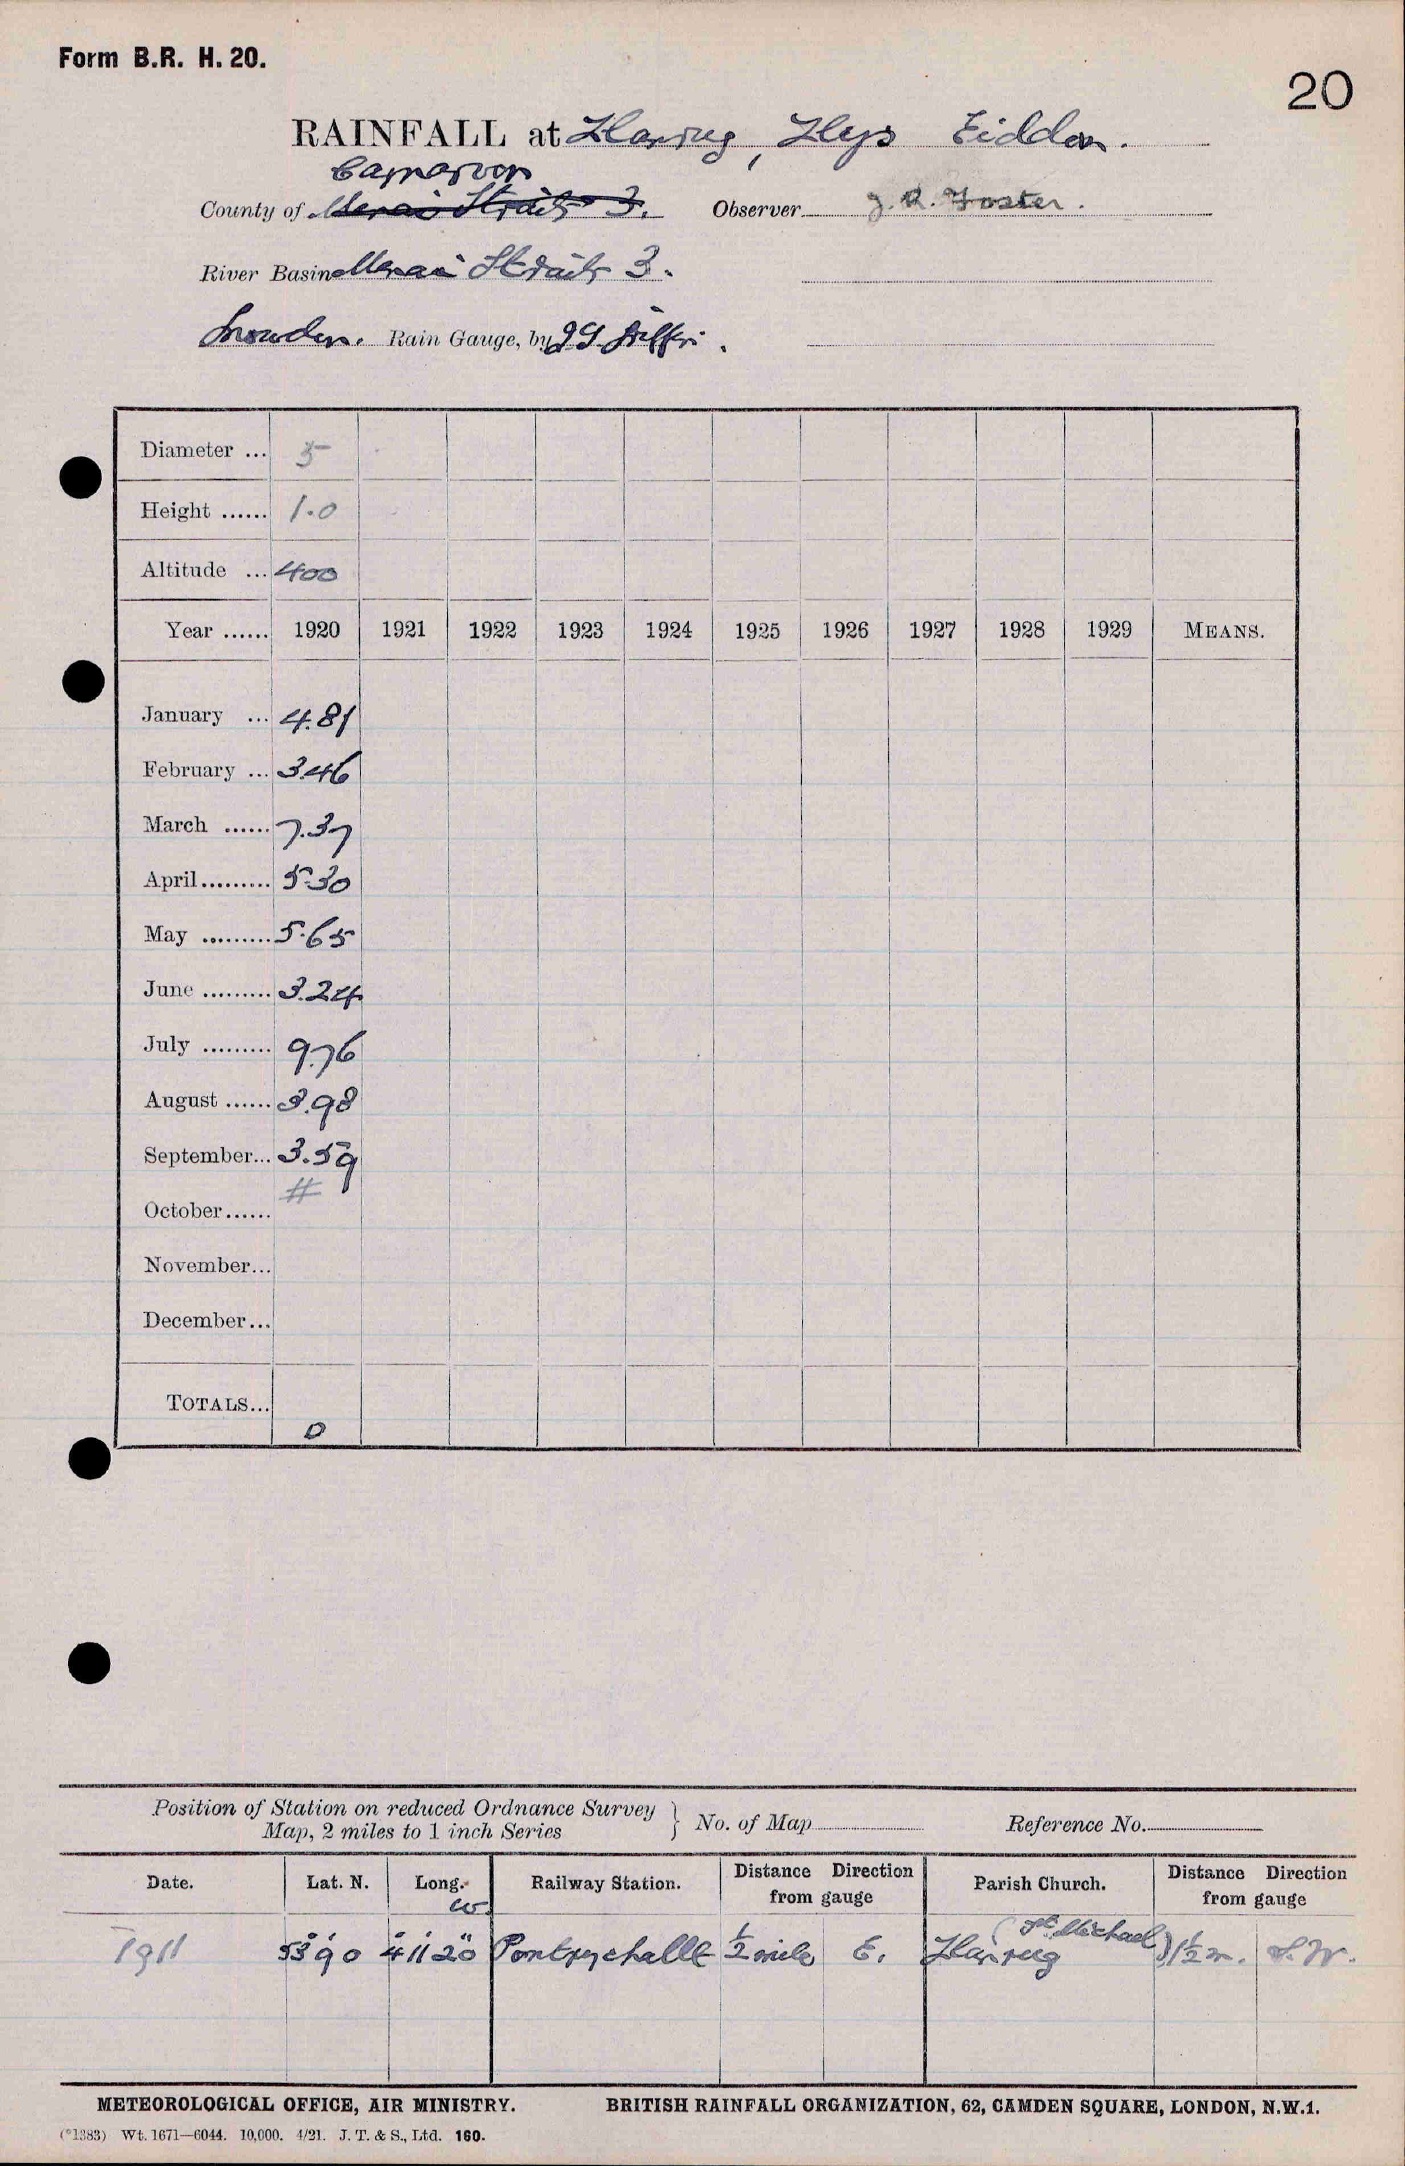 Form B.R. H. 20.
20
RAINFALL at Llanrug, Llys Eiddon.
Carnarvon
County of Menai Straits 3. Observer J. R. Foster.
River Basin Menai Straits 3.
Snowdon. Rain Gauge, by J.J.
Diameter ... 5
Height ...... 1.0
Altitude ... 400
Year ...... 1920 1921 1922 1923 1924 1925 1926 1927 1928 1929 MEANS.
January ... 4.81
February ... 3.46
March ...... 7.37
April ......... 5.30
May ......... 5.65
June ......... 3.24
July ......... 9.76
August ...... 3.98
September... 3.59
#
October......
November...
December...
TOTALS...
0
Position of Station on reduced Ordnance Survey
Map, 2 miles to 1 inch Series } No. of Map Reference No.
Date. Lat. N. Long. W. Railway Station. Distance Direction from gauge Parish Church. Distance Direction from gauge
1911 53° 9' 0 4° 11' 20" Pontrythallt 1/2 mile E. Llanrug (St. Michael) 1 1/2 m. S.W.
METEOROLOGICAL OFFICE, AIR MINISTRY. BRITISH RAINFALL ORGANIZATION, 62, CAMDEN SQUARE, LONDON, N.W.1.
(*1383) Wt. 1671—6044. 10,000. 4/21. J. T. & S., Ltd. 160.